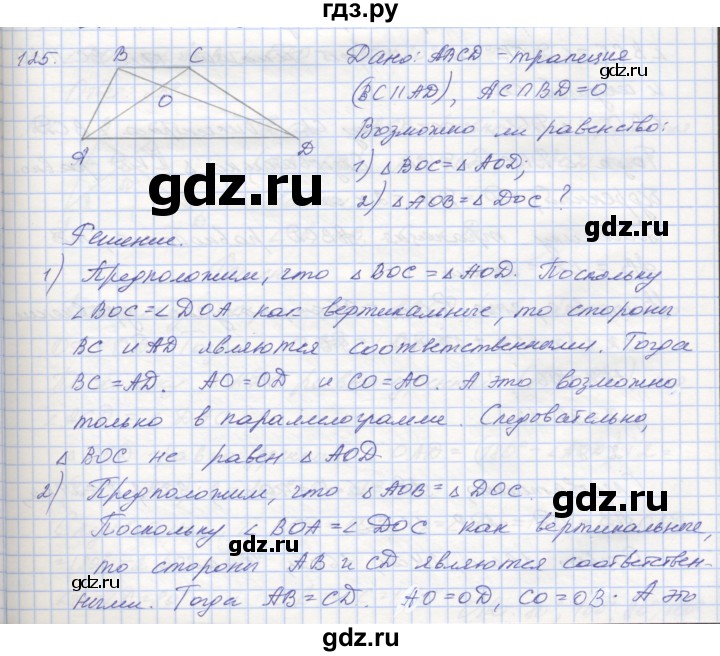 гдз.ру
125.
B C
O
A D
Дано: ABCD - трапеция
(BC || AD), AC∩BD=O
Возможно ли равенство:
1) △BOC = △AOD;
2) △AOB = △DOC?
gdz.ru
Решение.
1) Предположим, что △BOC = △AOD. Поскольку
∠BOC = ∠DOA как вертикальные, то стороны
BC и AD являются соответственными. Тогда
BC = AD. AO = OD и CO = AO. А это возможно
только в параллелограмме. Следовательно,
△BOC не равен △AOD.
2) Предположим, что △AOB = △DOC.
Поскольку ∠BOA = ∠DOC как вертикальные,
то стороны AB и CD являются соответствен-
ными. Тогда AB = CD. AO = OD, CO = OB. А это
gdz.ru
gdz.ru
gdz.ru
gdz.ru
gdz.ru
gdz.ru